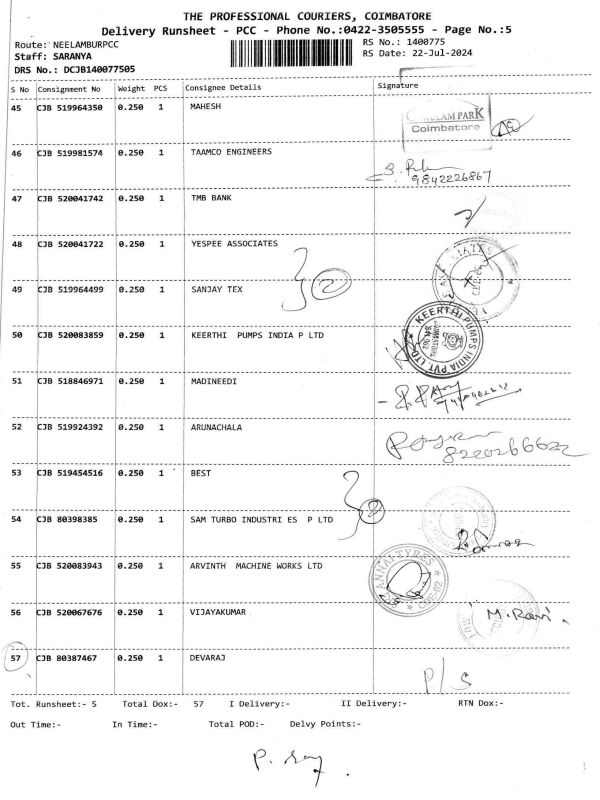 THE PROFESSIONAL COURIERS, COIMBATORE
Delivery Runsheet - PCC - Phone No.:0422-3505555 - Page No.:5
Route: NEELAMBURPCC RS No.: 1400775
Staff: SARANYA RS Date: 22-Jul-2024
DRS No.: DCJB140077505
S No Consignment No Weight PCS Consignee Details Signature
45 CJB 519964350 0.250 1 MAHESH
PARK
Coimbatore
46 CJB 519981574 0.250 1 TAAMCO ENGINEERS
9842226867
47 CJB 520041742 0.250 1 TMB BANK
48 CJB 520041722 0.250 1 YESPEE ASSOCIATES
2
49 CJB 519964499 0.250 1 SANJAY TEX
50 CJB 520083859 0.250 1 KEERTHI PUMPS INDIA P LTD
KEERTHI PUMPS INDIA PVT. LTD.
51 CJB 518846971 0.250 1 MADINEEDI
52 CJB 519924392 0.250 1 ARUNACHALA
8220266622
53 CJB 519454516 0.250 1 BEST
2
54 CJB 80398385 0.250 1 SAM TURBO INDUSTRI ES P LTD
55 CJB 520083943 0.250 1 ARVINTH MACHINE WORKS LTD
ANNAI TYRES
56 CJB 520067676 0.250 1 VIJAYAKUMAR
M. Ravi
57 CJB 80387467 0.250 1 DEVARAJ
P/S
Tot. Runsheet:- 5 Total Dox:- 57 I Delivery:- II Delivery:- RTN Dox:-
Out Time:- In Time:- Total POD:- Delvy Points:-